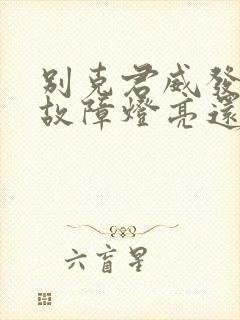 別克君威發
故障燈亮還
六盲星